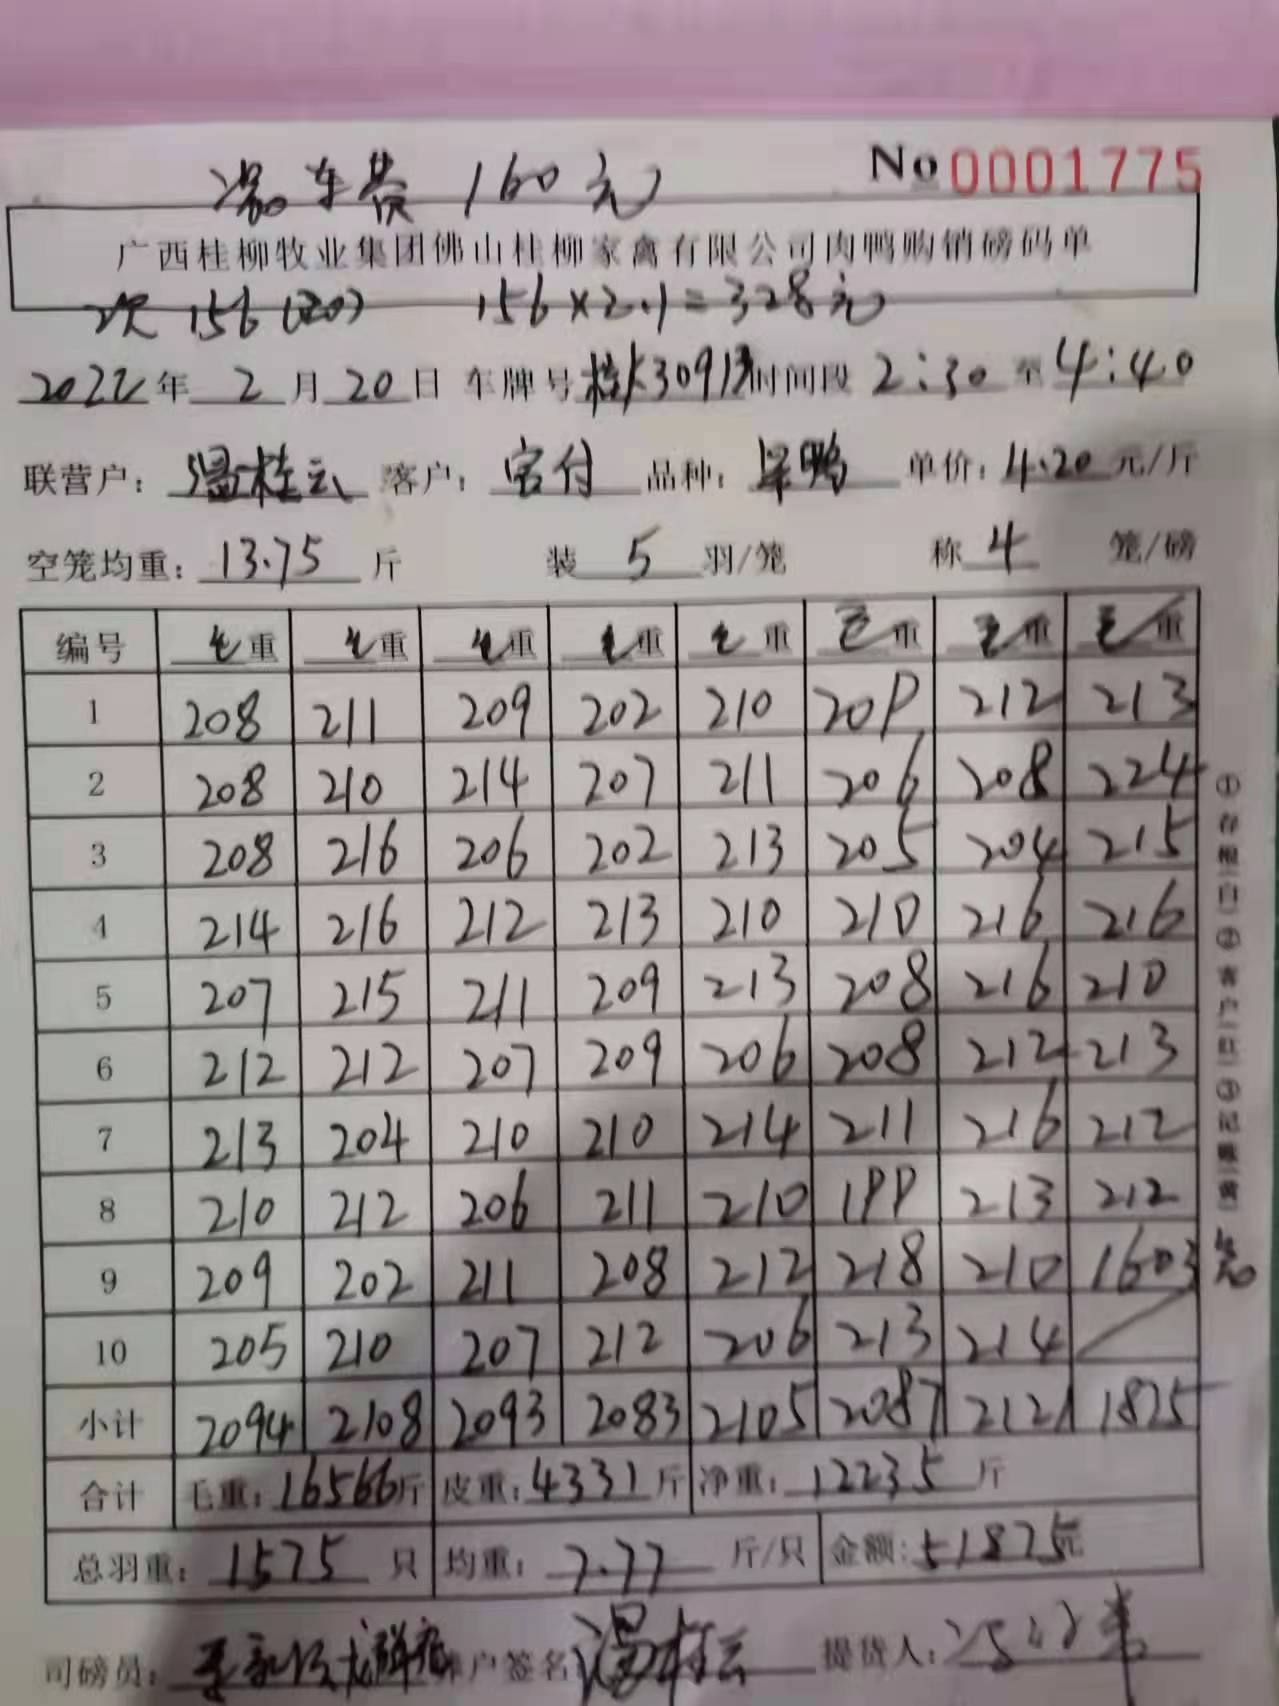 过车费 160元
No 0001775
广西桂柳牧业集团佛山桂柳家禽有限公司肉鸭购销磅码单
次 156(20) 156×2.1=328元
2022年 2月20日 车牌号 桂K30913 时间段 2:30 至 4:40
联营户: 温桂云 客户: 宝付 品种: 单价: 4.20 元/斤
空笼均重: 13.75 斤 装 5 羽/笼 称 4 笼/磅
编号 毛重 毛重 毛重 毛重 毛重 毛重 毛重 毛重
1 208 211 209 202 210 209 212 213
2 208 210 214 207 211 206 208 224
3 208 216 206 202 213 205 204 215
4 214 216 212 213 210 210 216 216
5 207 215 211 209 213 208 216 210
6 212 212 207 209 206 208 212 213
7 213 204 210 210 214 211 216 212
8 210 212 206 211 210 199 213 212
9 209 202 211 208 212 218 210 1603
10 205 210 207 212 206 213 214
小计 2094 2108 2093 2083 2105 2087 2121 1875
合计 毛重: 16566斤 皮重: 4331斤 净重: 12235斤
总羽重: 1575 只 均重: 7.77 斤/只 金额: 51875元
司磅员: 户签名 温桂云 提货人:
①存根(白)②客户(红)③记账(黄)